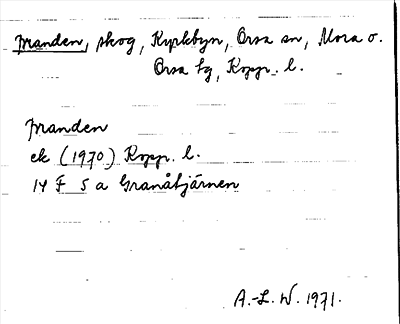 Franden, skog, Kyrkbyn, Orsa sn, Mora o.
Orsa tg, Kopp. l.
Franden
ek (1970) Kopp. l.
14 F 5 a Granåtjärnen
A.-L. W. 1971.